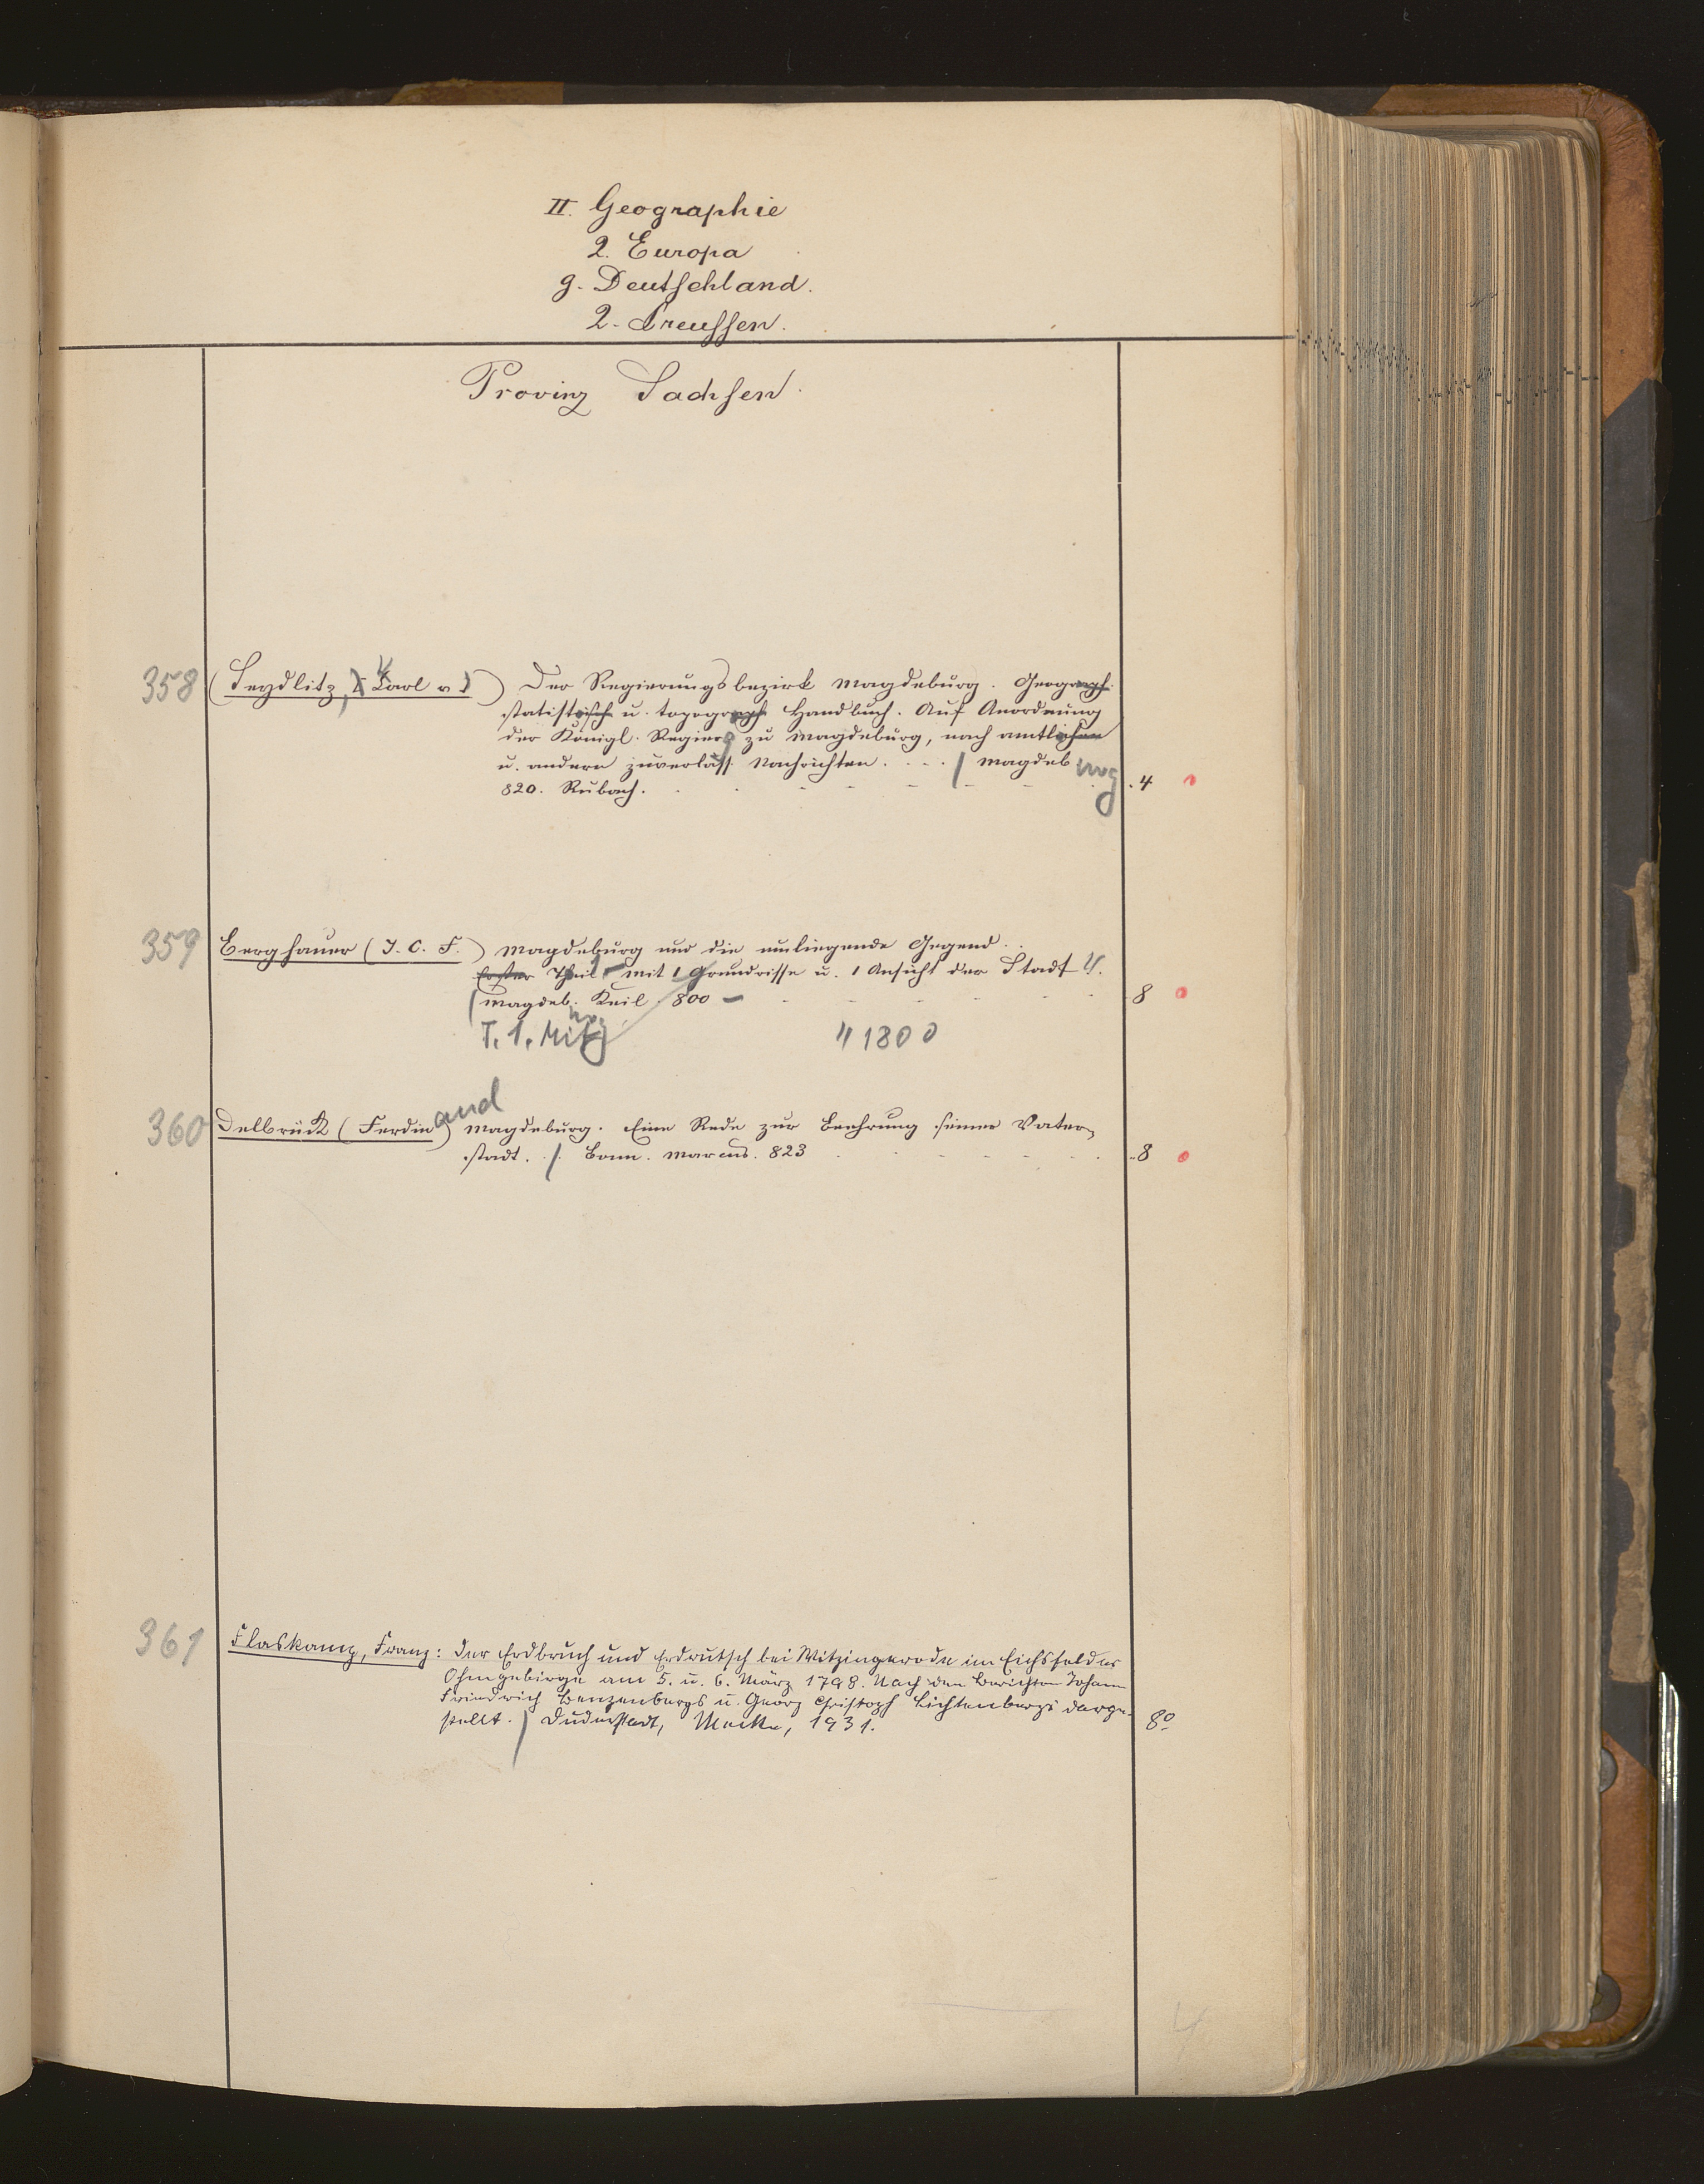 II. Geographie
2. Europa
g. Deutschland.
2. Preussen.
Provinz Sachsen.
358 (Seydlitz, Carl v.) Der Regierungsbezirk Magdeburg. Geograph.
statistische u. topograph Handbuch. Auf Anordnung
der Königl. Regierg zu Magdeburg, nach amtlichen
u. andern zuverläss. Nachrichten. . . . / Magdeburg
820. Rubach. 4
359 Berghauer (J. C. F.) Magdeburg und die umliegende Gegend.
Erster Theil. Mit 1 Grundrisse u. 1 Ansicht der Stadt.
/ Magdeb. Keil. 800 8
T. 1. Mit 1800
360 Delbrück (Ferdinand) Magdeburg. Eine Rede zur Beehrung seiner Vater-
stadt. / Bonn. Marcus. 823 8
361 Flaskamp, Franz: Der Erdbruch und Erdrutsch bei Witzingerode im Eichsfelder
Ohmgebirge am 5. u. 6. März 1798. Nach den Berichten Johann
Friedrich Benzenbergs u. Georg Christoph Lichtenbergs darge-
stellt. / Duderstadt, Mecke, 1931. 8º